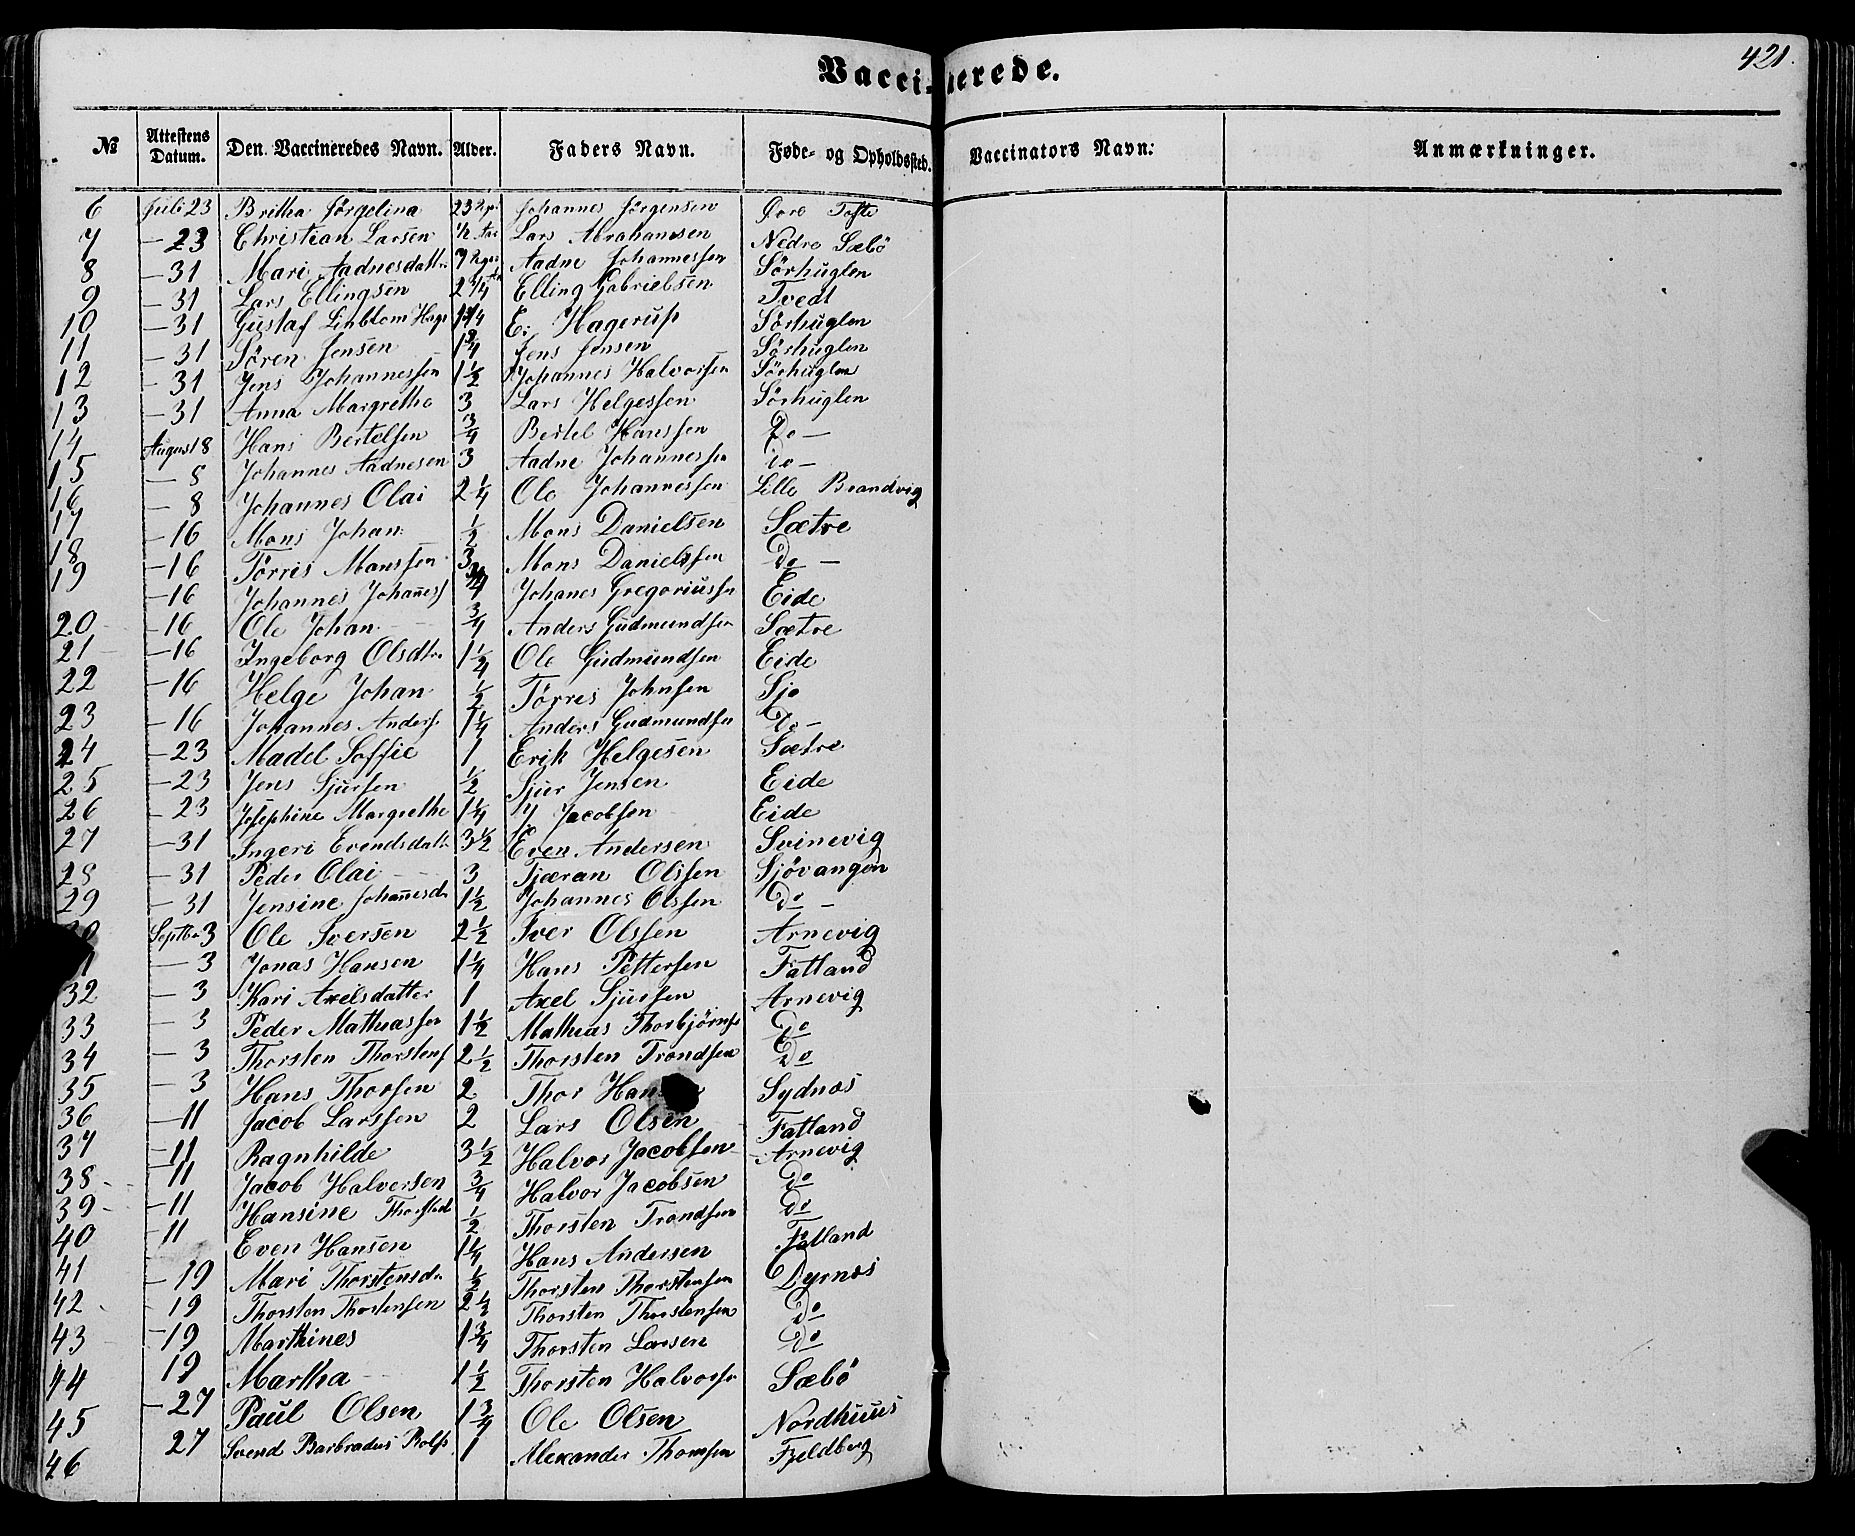 421.
Vaccinerede.
№ Attestens Datum. Den Vaccineredes Navn. Alder. Faders Navn. Føde- og Opholdssted. Vaccinators Navn: Anmærkninger.
6 Juli 23 Britha Jørgelina 23 Johannes Jørgensen Øvre Tofte
7 — 23 Christian Larsen ½ Aar Lars Abrahamsen Nedre Sæbö
8 — 31 Mari Aadnesdattr 9 Aadne Johannessen Sörhuglen
9 — 31 Lars Ellingsen 2 ¼ Elling Gabrielsen Tvedt
10 — 31 Gustaf Linblom Hage 1 ¾ E: Hagerup Sörhuglen
11 — 31 Sören Jensen 1 ¾ Jens Jensen Sörhuglen
12 — 31 Jens Johannessen 1 ½ Johannes Halvorsen Sörhuglen
13 — 31 Anna Margrethe 3 Lars Helgessen Sörhuglen
14 August 8 Hans Bertelsen ¾ Bertel Hanssen Do —
15 — 8 Johannes Aadnesen 3 Aadne Johannessen do —
16 — 8 Johannes Olai 2 ¼ Ole Johannessen Lille Brandvig
17 — 16 Mons Johan ½ Mons Danielsen Sætre
18 — 16 Törris Monssen 3 Mons Danielssen Do —
19 — 16 Johannes Johaness ¾ Johanes Gregoriussn Eide
20 — 16 Ole Johan ¾ Anders Gudmundsen Sætre
21 — 16 Ingeborg Olsdtr. 1 ¼ Ole Gudmundsen Eide
22 — 16 Helge Johan ½ Törres Johnsen Sjo
23 — 16 Johannes Anders. 1 ¼ Anders Gudmundsen Do —
24 — 23 Madel Soffie 1 Erik Helgesen Sætre
25 — 23 Jens Sjursen ½ Sjur Jensen Eide
26 — 23 Josephine Margrethe 1 ¼ Jacobsen Eide
27 — 31 Ingeri Evendsdattr 3 ½ Even Andersen Svinevig
28 — 31 Peder Olai 3 Tjæran Olssen Sjövangen
29 — 31 Jensine Johanesdr 1 ½ Johannes Olssen Do —
Septbr 3 Ole Iversen 2 ½ Iver Olssen Arnevig
— 3 Jonas Hansen 1 ¼ Hans Pettersen Fatland
32 — 3 Kari Axelsdatter 1 Axel Sjursen Arnevig
33 — 3 Peder Mathiassen 1 ½ Mathias Thorbjörns Do
34 — 3 Thorsten Thorstens 2 ½ Thorsten Trondsen Do
35 — 3 Hans Thorsen 2 Thor Han Sydnæs
36 — 11 Jacob Larssen 2 Lars Olsen Fatland
37 — 11 Ragnhilde 3 ½ Halvor Jacobsen Arnevig
38 — 11 Jacob Halversen ¾ Halvor Jacobsen Do
39 — 11 Hansine Thorsted ½ Thorsten Trondsen Do
40 — 11 Even Hansen 1 ¼ Hans Andersen Fatland
41 — 19 Mari Thorstensdr ½ Thorsten Thorstensen Dyrnes
42 — 19 Thorsten Thorstensen 2 ½ Thorsten Thorstensen Do
43 — 19 Marthines 1 ¾ Thorsten Larsen Do
44 19 Martha 1 ½ Thorsten Halvorsn Sæbö
45 — 27 Paul Olsen 1 ¾ Ole Olsen Nordhuus
46 27 Svend Barbradus Rolfs. 1 Alexander Thomsen Fjeldberg